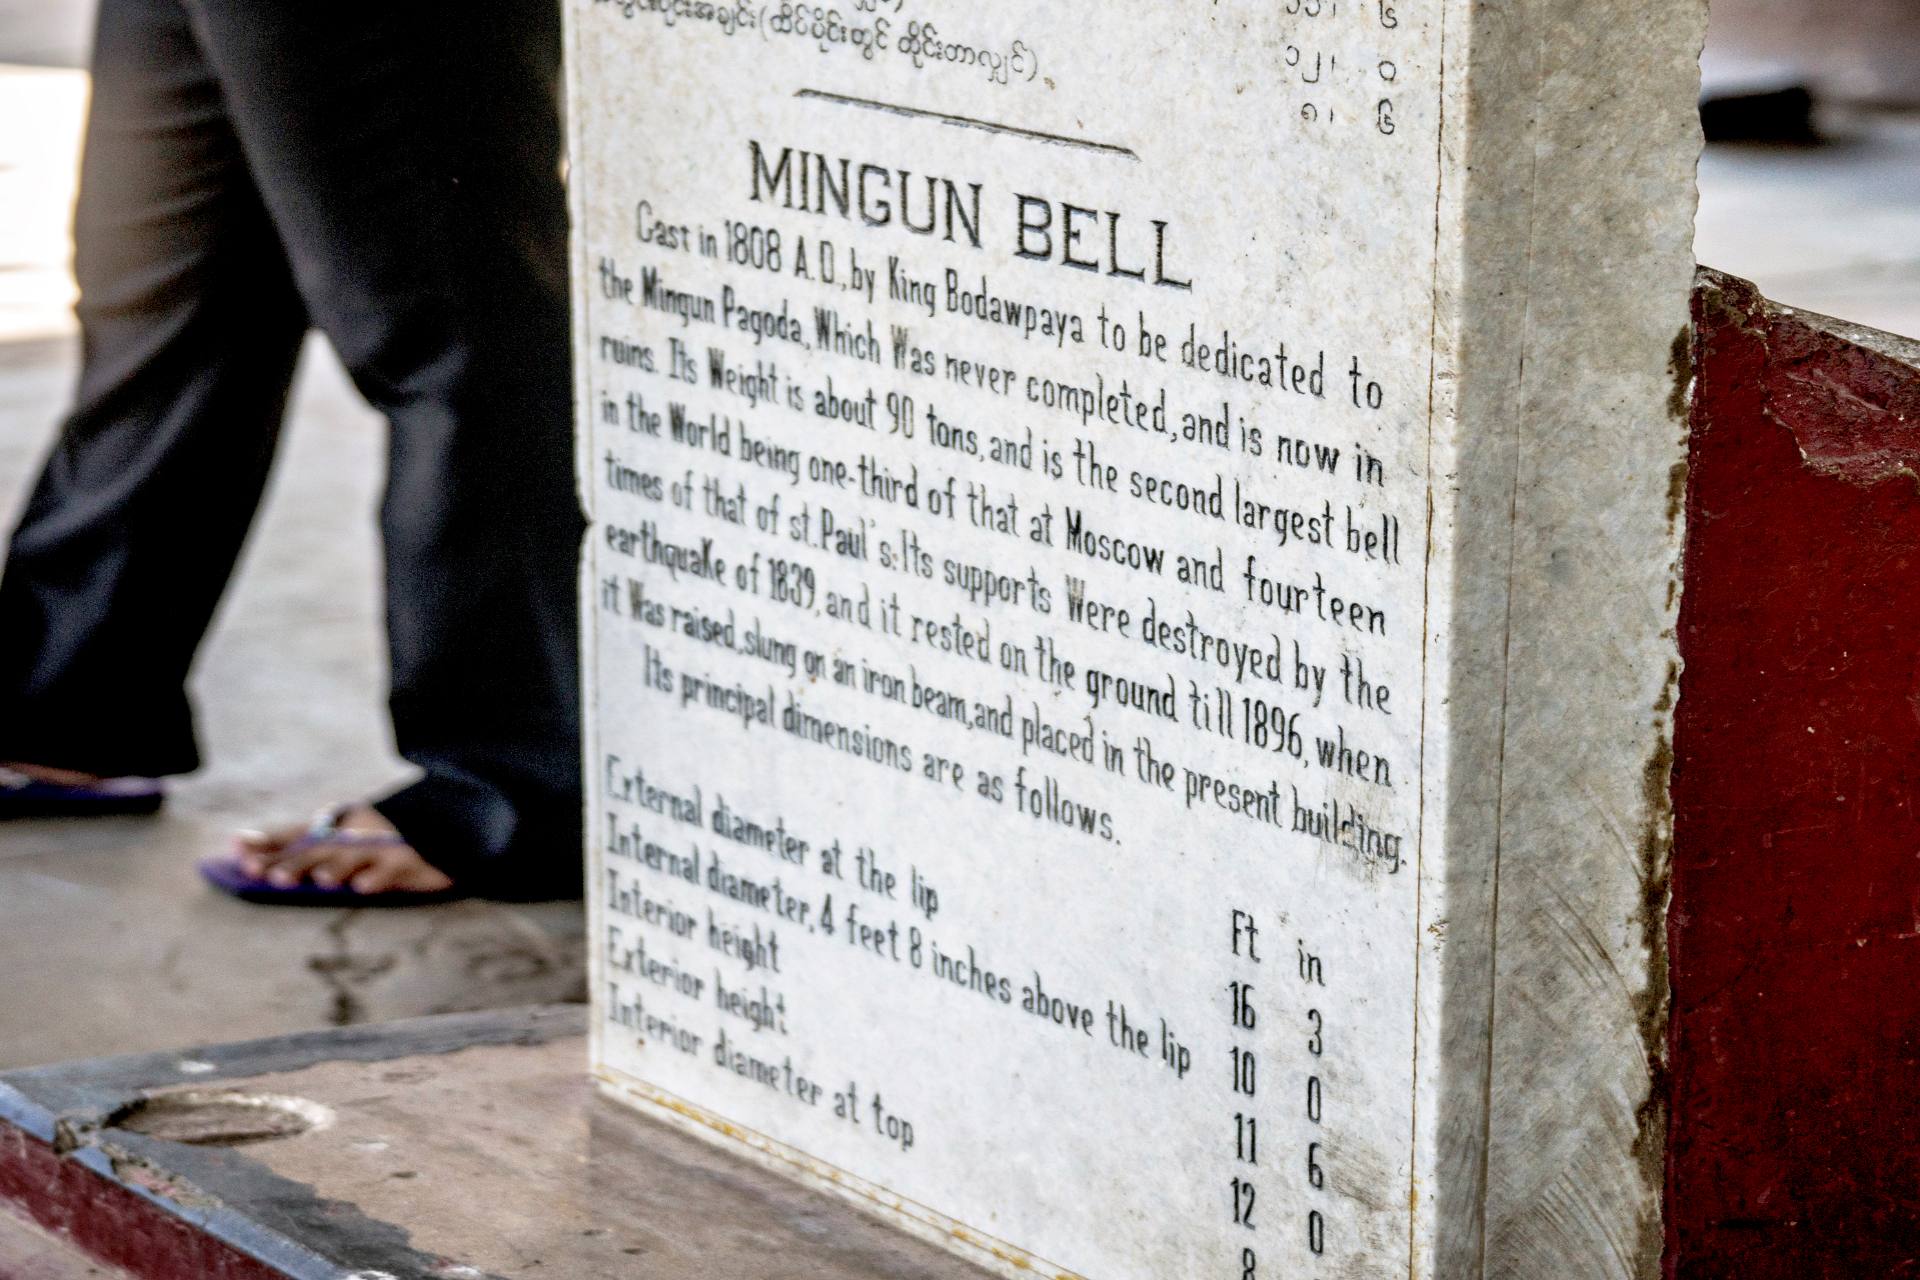 အတွင်းပိုင်းအချင်း(ထိပ်ပိုင်းတွင် တိုင်းတာလျှင်)
၁၁၊ ၆
၁၂၊ ၀
၈၊ ၆
MINGUN BELL
Cast in 1808 A.D., by King Bodawpaya to be dedicated to
the Mingun Pagoda, Which Was never completed, and is now in
ruins. Its Weight is about 90 tons, and is the second largest bell
in the World being one-third of that at Moscow and fourteen
times of that of st. Paul's: Its supports Were destroyed by the
earthquaKe of 1839, and it rested on the ground till 1896, when
it Was raised, slung on an iron beam, and placed in the present building.
Its principal dimensions are as follows.
Ft in
External diameter at the lip 16 3
Internal diameter, 4 feet 8 inches above the lip 10 0
Interior height 11 6
Exterior height 12 0
Interior diameter at top 8